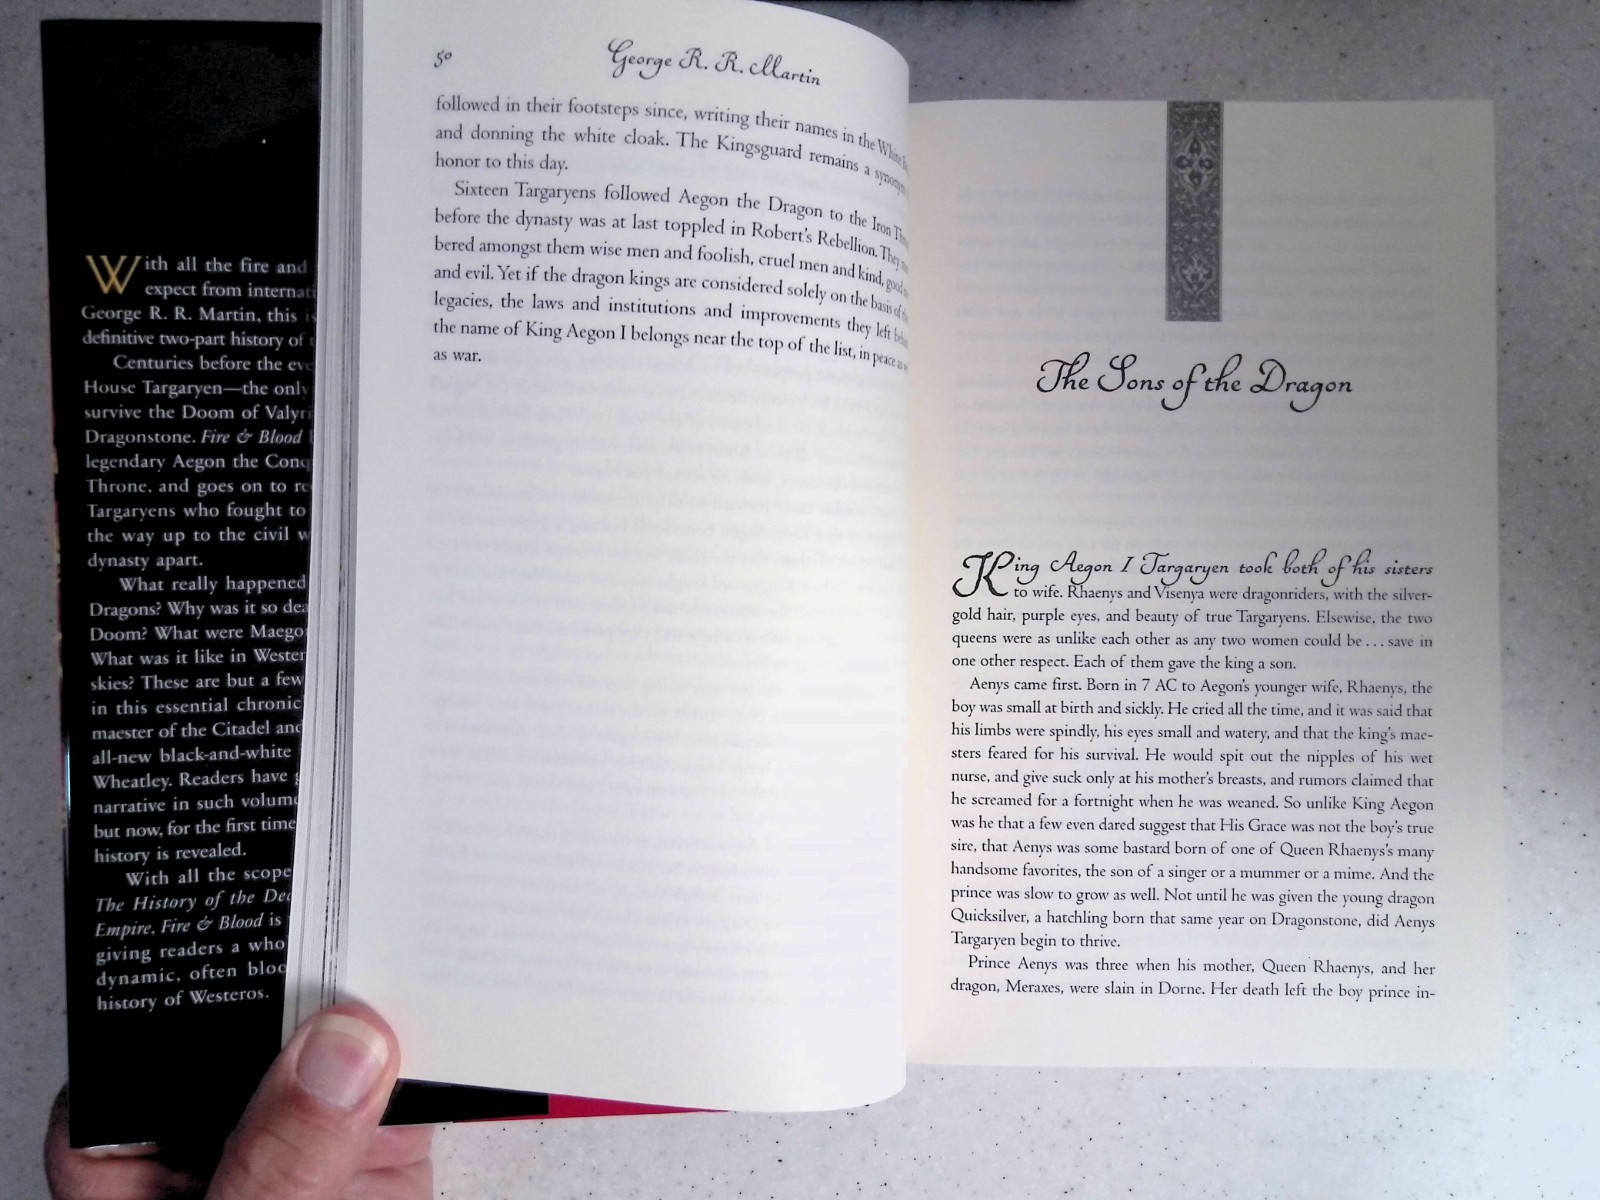 With all the fire and
expect from internat
George R. R. Martin, this
definitive two-part history of
Centuries before the eve
House Targaryen—the only
survive the Doom of Valyri
Dragonstone. Fire & Blood
legendary Aegon the Conq
Throne, and goes on to re
Targaryens who fought to
the way up to the civil w
dynasty apart.
What really happened
Dragons? Why was it so dea
Doom? What were Maego
What was it like in Wester
skies? These are but a few
in this essential chronic
maester of the Citadel and
all-new black-and-white
Wheatley. Readers have
narrative in such volume
but now, for the first time
history is revealed.
With all the scope
The History of the Dec
Empire, Fire & Blood is
giving readers a who
dynamic, often bloo
history of Westeros.
50
George R. R. Martin
followed in their footsteps since, writing their names in the White
and donning the white cloak. The Kingsguard remains a synonym
honor to this day.
Sixteen Targaryens followed Aegon the Dragon to the Iron Thr
before the dynasty was at last toppled in Robert's Rebellion. They
bered amongst them wise men and foolish, cruel men and kind, good
and evil. Yet if the dragon kings are considered solely on the basis of
legacies, the laws and institutions and improvements they left
the name of King Aegon I belongs near the top of the list, in peace
as war.
The Sons of the Dragon
King Aegon I Targaryen took both of his sisters
to wife. Rhaenys and Visenya were dragonriders, with the silver-
gold hair, purple eyes, and beauty of true Targaryens. Elsewise, the two
queens were as unlike each other as any two women could be . . . save in
one other respect. Each of them gave the king a son.
Aenys came first. Born in 7 AC to Aegon's younger wife, Rhaenys, the
boy was small at birth and sickly. He cried all the time, and it was said that
his limbs were spindly, his eyes small and watery, and that the king's mae-
sters feared for his survival. He would spit out the nipples of his wet
nurse, and give suck only at his mother's breasts, and rumors claimed that
he screamed for a fortnight when he was weaned. So unlike King Aegon
was he that a few even dared suggest that His Grace was not the boy's true
sire, that Aenys was some bastard born of one of Queen Rhaenys's many
handsome favorites, the son of a singer or a mummer or a mime. And the
prince was slow to grow as well. Not until he was given the young dragon
Quicksilver, a hatchling born that same year on Dragonstone, did Aenys
Targaryen begin to thrive.
Prince Aenys was three when his mother, Queen Rhaenys, and her
dragon, Meraxes, were slain in Dorne. Her death left the boy prince in-